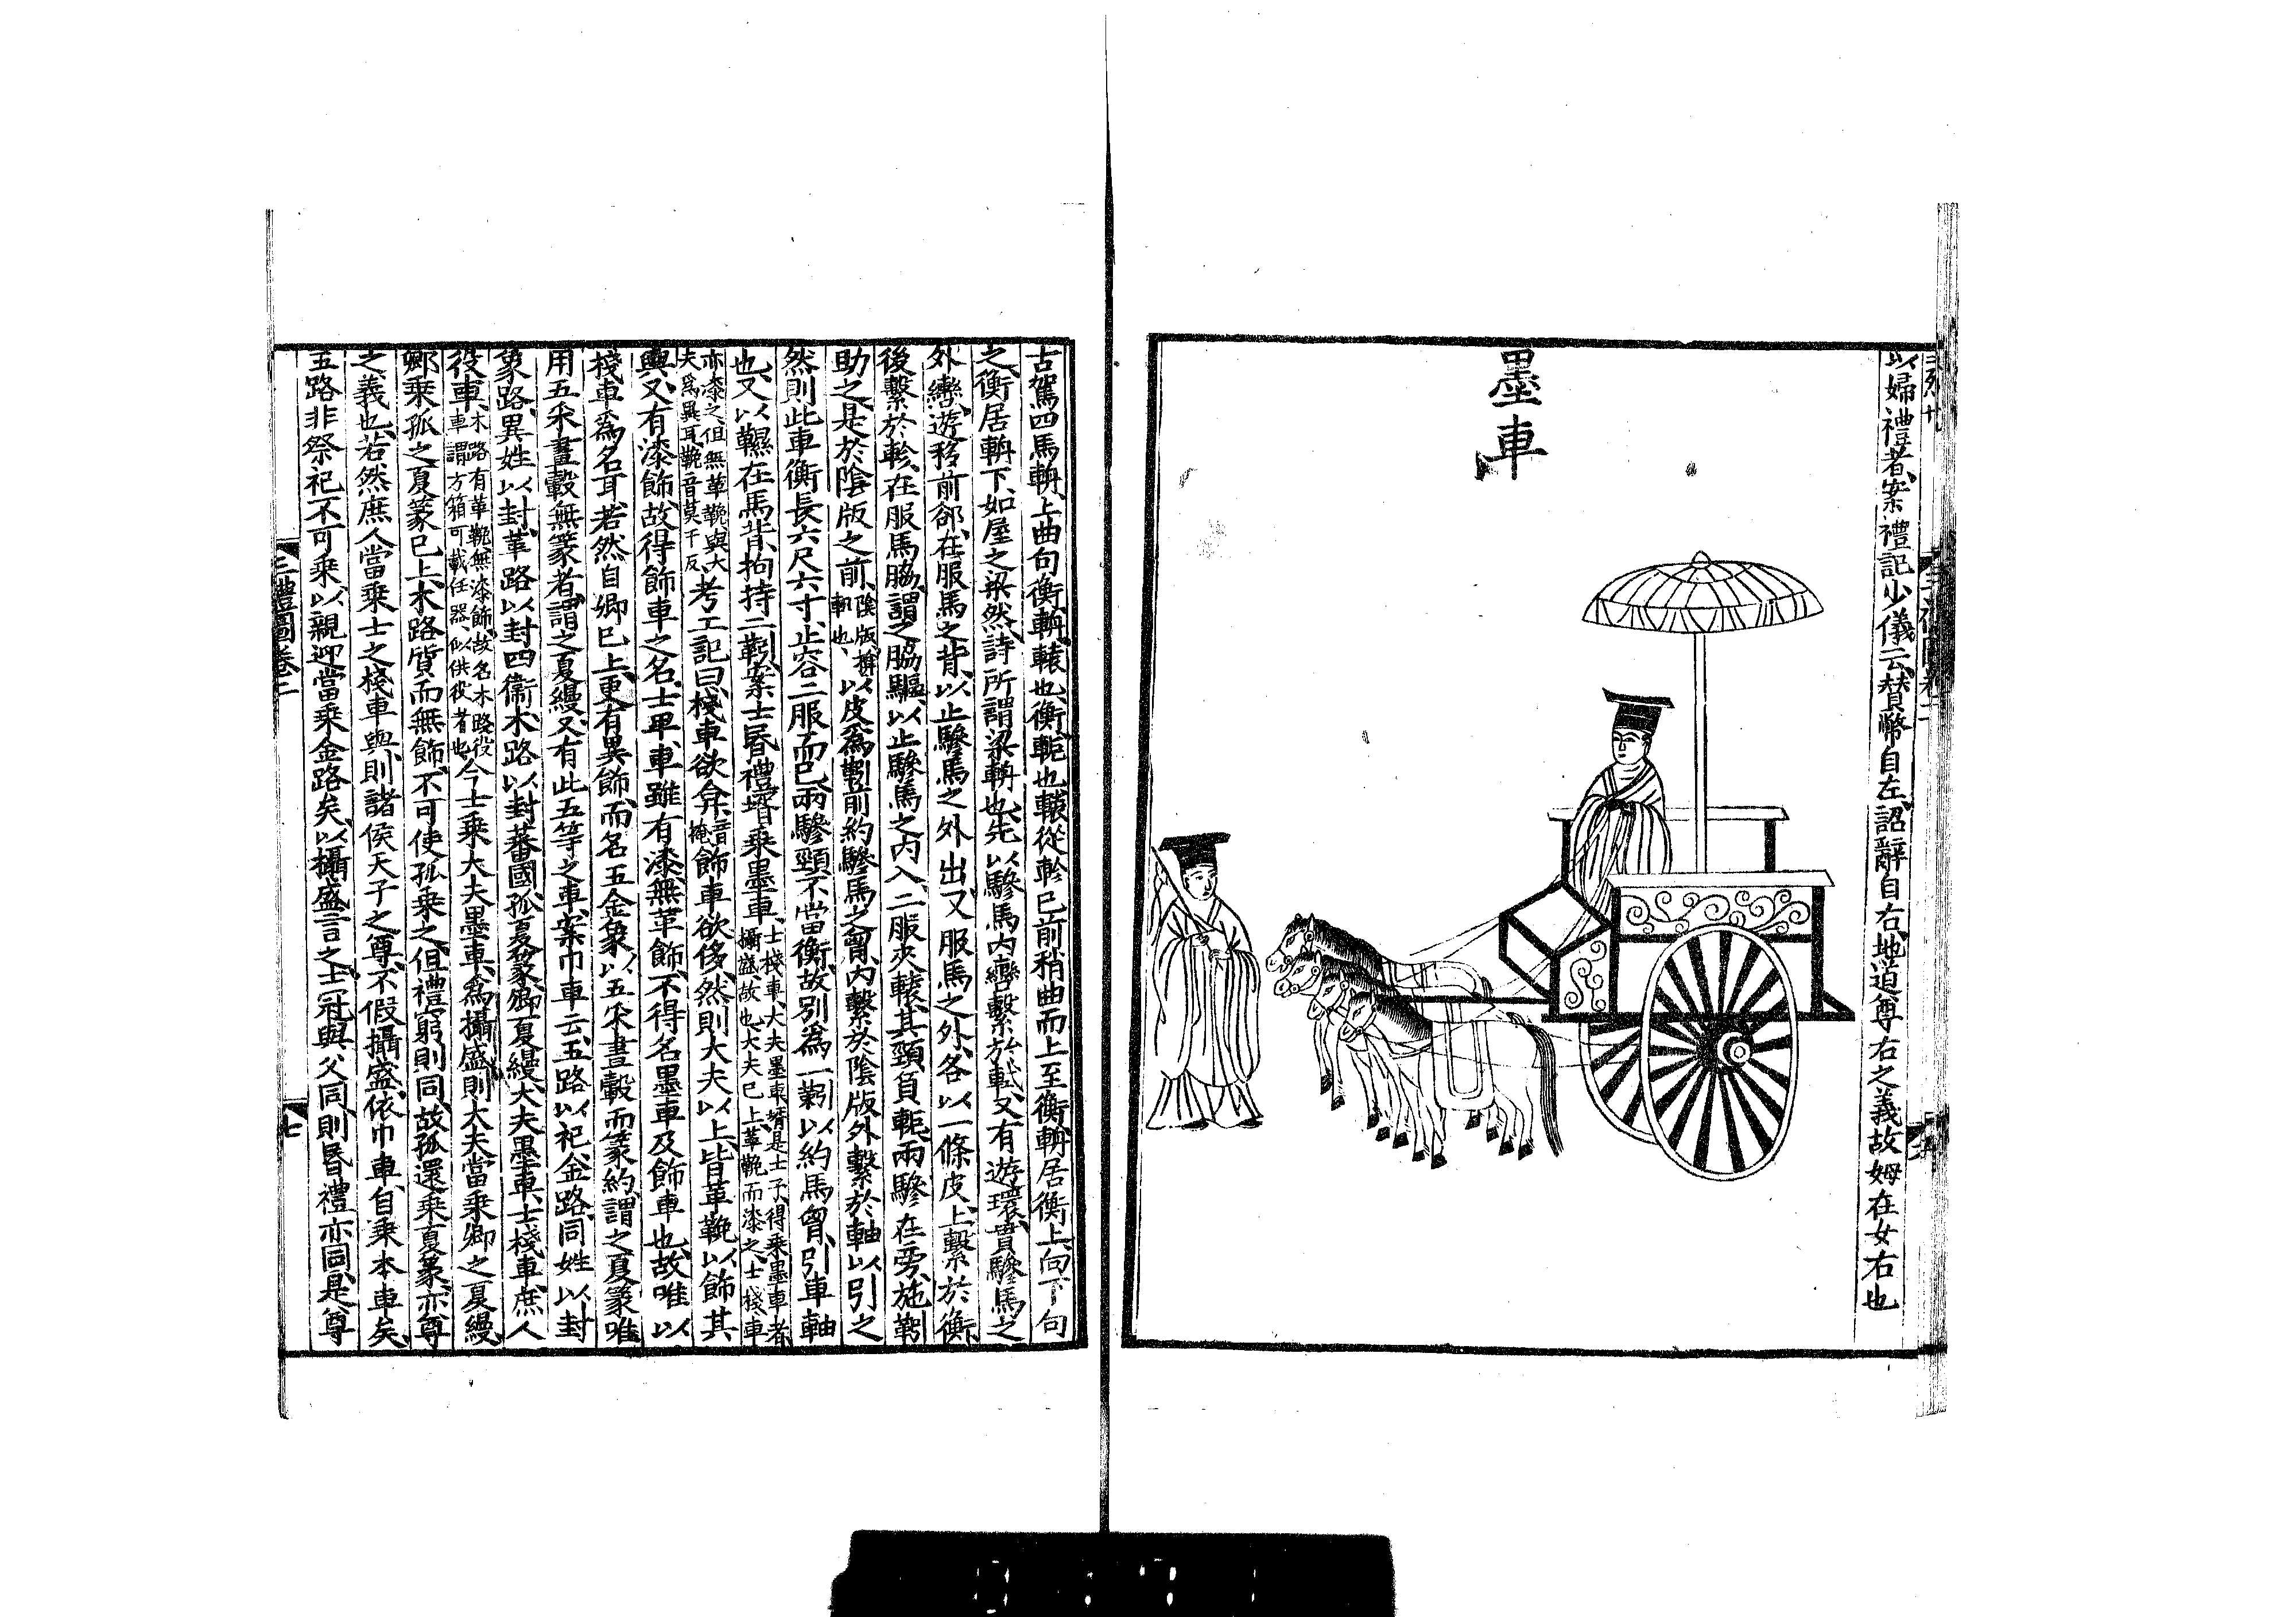 以婦禮者案禮記少儀云贊幣自左詔辭自右地道尊右之義故姆在女右也
墨車
古駕四馬輈上曲句衡輈轅也衡軛也轅從軫已前稍曲而上至衡輈居衡上向下句
之衡居輈下如屋之梁然詩所謂梁輈也先以驂馬內轡繫於軾又有遊環貫驂馬之
外轡遊移前郤在服馬之背以止驂馬之外出又服馬之外各以一條皮上繫於衡
後繫於軫在服馬脇謂之脇驅以止驂馬之內入二服夾轅其頸負軛兩驂在旁施靷
助之是於陰版之前陰版揜軓也以皮爲靷前約驂馬之胷內繫於陰版外繫於軸以引之
然則此車衡長六尺六寸止容二服而已兩驂頸不當衡故別爲一靷以約馬胷引車軸
也又以韅在馬背拘持二靷案士昏禮壻乘墨車士棧車大夫墨車壻是士子得乘墨車者攝盛故也大夫已上革鞔而漆之士棧車
亦漆之但無革鞔與大夫爲異耳鞔音莫干反考工記曰棧車欲弇音掩飾車欲侈然則大夫以上皆革鞔以飾其
輿又有漆飾故得飾車之名士卑車雖有漆無革飾不得名墨車及飾車也故唯以
棧車爲名耳若然自卿已上更有異飾而名五金象以五采畫轂而篆約謂之夏篆唯
用五采畫轂無篆者謂之夏縵又有此五等之車案巾車云玉路以祀金路同姓以封
象路異姓以封革路以封四衞木路以封蕃國孤夏篆卿夏縵大夫墨車士棧車庶人
役車木路有革鞔無漆飾故名木路役車謂方箱可載任器似供役者也今士乘大夫墨車爲攝盛則大夫當乘卿之夏縵
鄉乘孤之夏篆已上木路質而無飾不可使孤乘之但禮窮則同故孤還乘夏篆亦尊
之義也若然庶人當乘士之棧車與則諸侯天子之尊不假攝盛依巾車自乘本車矣
五路非祭祀不可乘以親迎當乘金路矣以攝盛言之士冠與父同則昏禮亦同是尊
三禮圖卷二
七